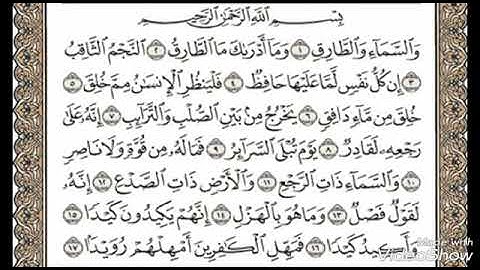 بِسْمِ ٱللَّهِ ٱلرَّحْمَٰنِ ٱلرَّحِيمِ
وَٱلسَّمَآءِ وَٱلطَّارِقِ ١ وَمَآ أَدْرَىٰكَ مَا ٱلطَّارِقُ ٢ ٱلنَّجْمُ ٱلثَّاقِبُ
٣ إِن كُلُّ نَفْسٍ لَّمَّا عَلَيْهَا حَافِظٌ ٤ فَلْيَنظُرِ ٱلْإِنسَٰنُ مِمَّ خُلِقَ ٥
خُلِقَ مِن مَّآءٍ دَافِقٍ ٦ يَخْرُجُ مِنۢ بَيْنِ ٱلصُّلْبِ وَٱلتَّرَآئِبِ ٧ إِنَّهُۥ عَلَىٰ
رَجْعِهِۦ لَقَادِرٌ ٨ يَوْمَ تُبْلَى ٱلسَّرَآئِرُ ٩ فَمَا لَهُۥ مِن قُوَّةٍ وَلَا نَاصِرٍ
١٠ وَٱلسَّمَآءِ ذَاتِ ٱلرَّجْعِ ١١ وَٱلْأَرْضِ ذَاتِ ٱلصَّدْعِ ١٢ إِنَّهُۥ
لَقَوْلٌ فَصْلٌ ١٣ وَمَا هُوَ بِٱلْهَزْلِ ١٤ إِنَّهُمْ يَكِيدُونَ كَيْدًا ١٥
وَأَكِيدُ كَيْدًا ١٦ فَمَهِّلِ ٱلْكَٰفِرِينَ أَمْهِلْهُمْ رُوَيْدًۢا ١٧
Made with
VideoShow